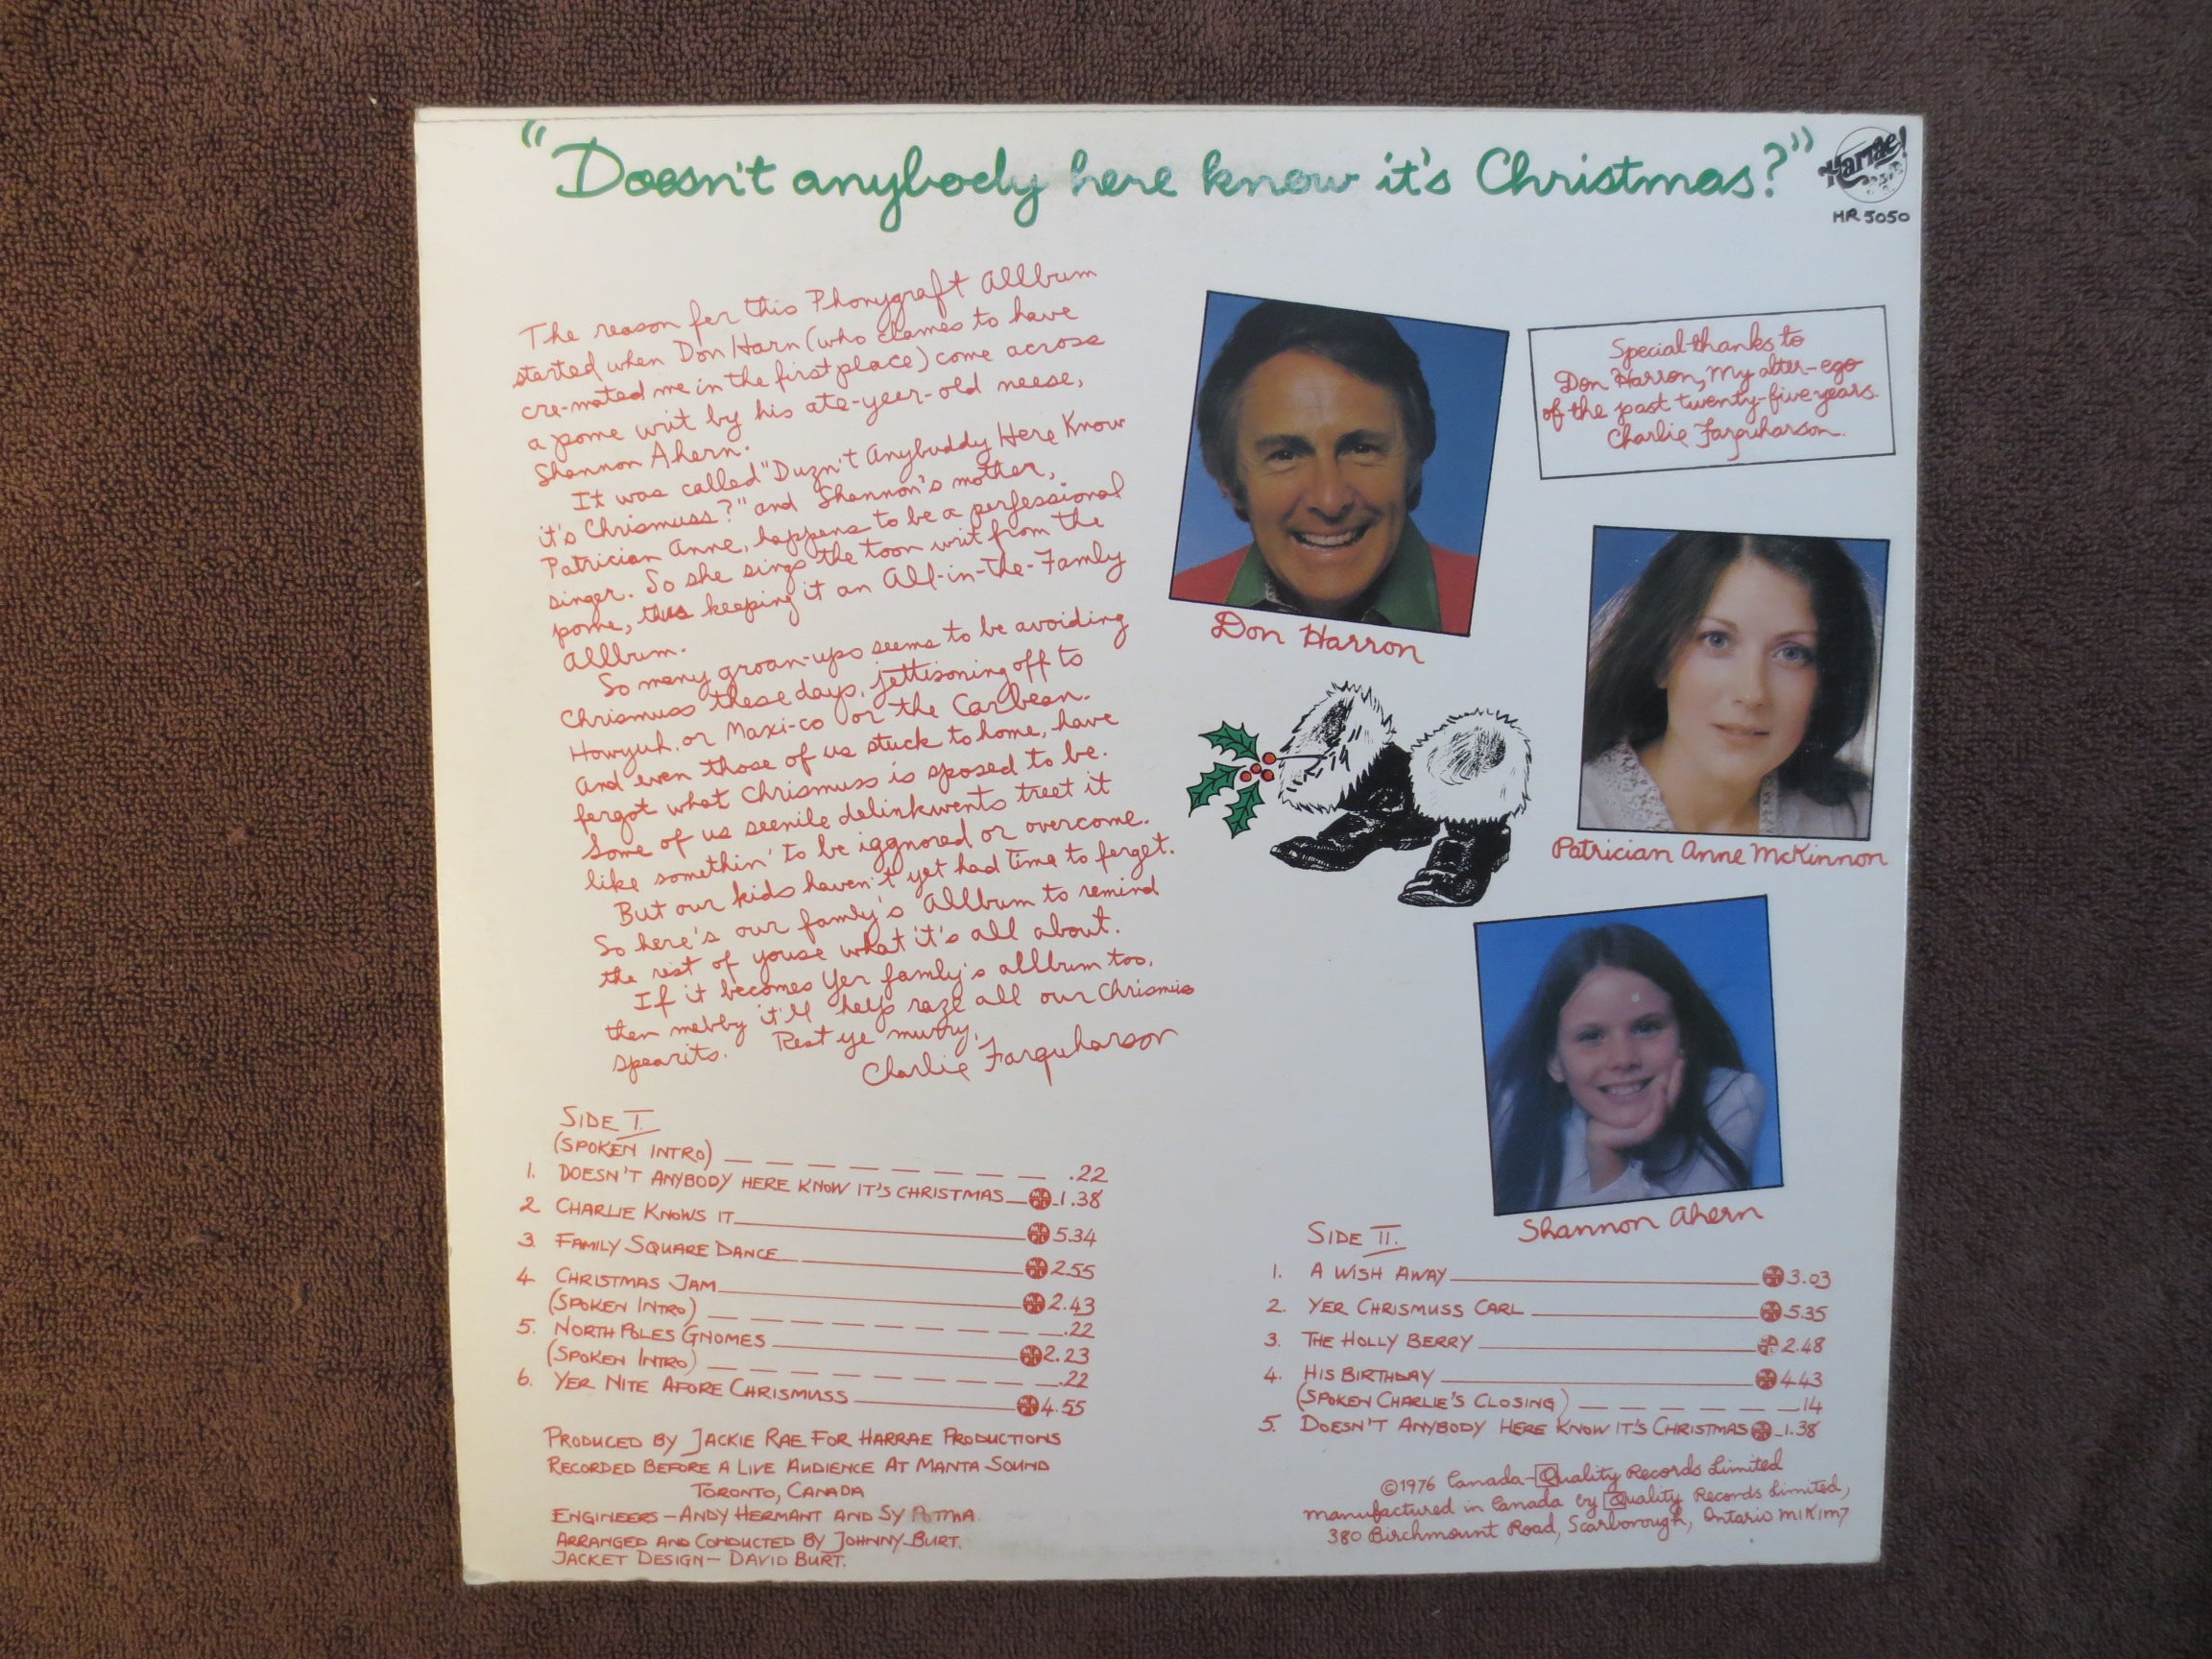 "Doesn't anybody here know it's Christmas?"
Harrae
HR 5050
The reason fer this Phonygraft Allbum
started when Don Harn (who clames to have
cre-mated me in the first place) come across
a pome writ by his ate-year-old neese,
Shannon Ahern.
It was called "Duzn't Anybuddy Here Know
it's Chrismuss?" and Shannon's mother,
Patrician Anne, happens to be a perfessional
singer. So she sings the toon writ from the
pome, thus keeping it an All-in-the-Famly
Allbum.
So many groan-ups seems to be avoiding
Chrismuss these days, jettisoning off to
Howyuh, or Maxi-co or the Carbean.
And even those of us stuck to home, have
fergot what Chrismuss is sposed to be.
Some of us seenile delinkwents treet it
like somethin' to be iggnored or overcome.
But our kids haven't yet had time to ferget.
So here's our famly's Allbum to remind
the rest of youse what it's all about.
If it becomes Yer famly's allbum too,
then mebby it'll help raze all our Chrismuss
spearits. Rest ye murry,
Charlie Farquharson
Special thanks to
Don Harron, my alter-ego
of the past twenty-five years.
Charlie Farquharson.
Don Harron
Patrician Anne McKinnon
Shannon Ahern
SIDE I
(SPOKEN INTRO) .22
1. DOESN'T ANYBODY HERE KNOW IT'S CHRISTMAS 1.38
2 CHARLIE KNOWS IT 5.34
3. FAMILY SQUARE DANCE 2.55
4 CHRISTMAS JAM 2.43
(SPOKEN INTRO) .22
5. NORTH POLES GNOMES 2.23
(SPOKEN INTRO) .22
6. YER NITE AFORE CHRISMUSS 4.55
PRODUCED BY JACKIE RAE FOR HARRAE PRODUCTIONS
RECORDED BEFORE A LIVE AUDIENCE AT MANTA SOUND
TORONTO, CANADA
ENGINEERS - ANDY HERMANT AND SY POTMA.
ARRANGED AND CONDUCTED BY JOHNNY BURT.
JACKET DESIGN - DAVID BURT.
SIDE II.
1. A WISH AWAY 3.03
2. YER CHRISMUSS CARL 5.35
3. THE HOLLY BERRY 2.48
4. HIS BIRTHDAY 4.43
(SPOKEN CHARLIE'S CLOSING) .14
5. DOESN'T ANYBODY HERE KNOW IT'S CHRISTMAS 1.38
©1976 Canada-Quality Records Limited
manufactured in Canada by Quality Records Limited,
380 Birchmount Road, Scarborough, Ontario M1K1M7